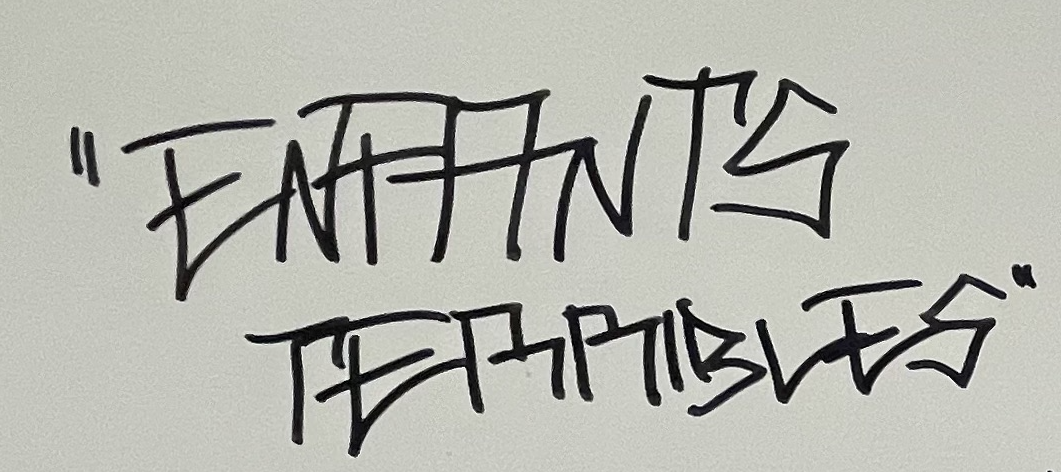 "ENFANTS
TERRIBLES"